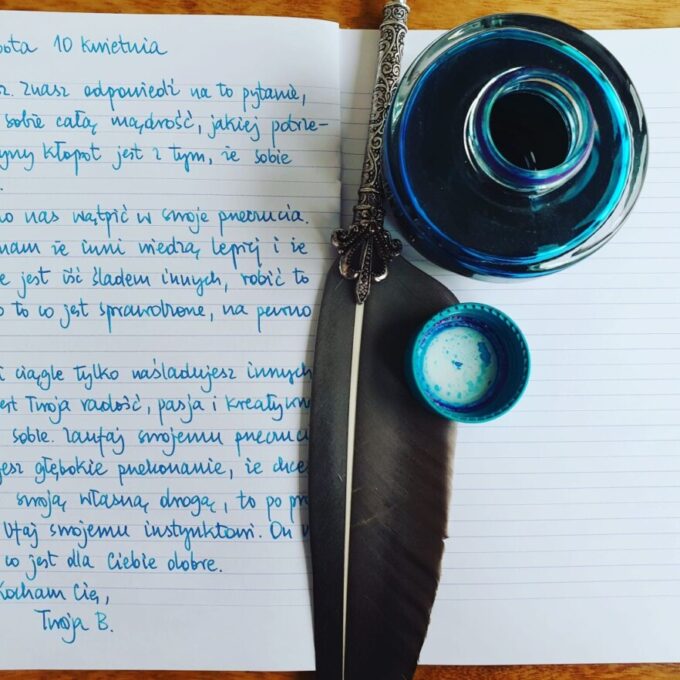 ota 10 kwietnia
z. Znasz odpowiedź na to pytanie,
sobie całą mądrość, jakiej potrze-
yny kłopot jest z tym, że sobie
.
no nas wątpić w swoje przeczucia.
nam że inni wiedzą lepiej i że
e jest iść śladem innych, robić to
o to co jest sprawdzone, na pewno
i ciągle tylko naśladujesz innych
est Twoja radość, pasja i kreatywn
sobie. Zaufaj swojemu przeczuci
jesz głębokie przekonanie, że chce
swoją własną drogą, to po pr
ufaj swojemu instynktowi. On w
co jest dla Ciebie dobre.
Kocham Cię,
Twoja B.